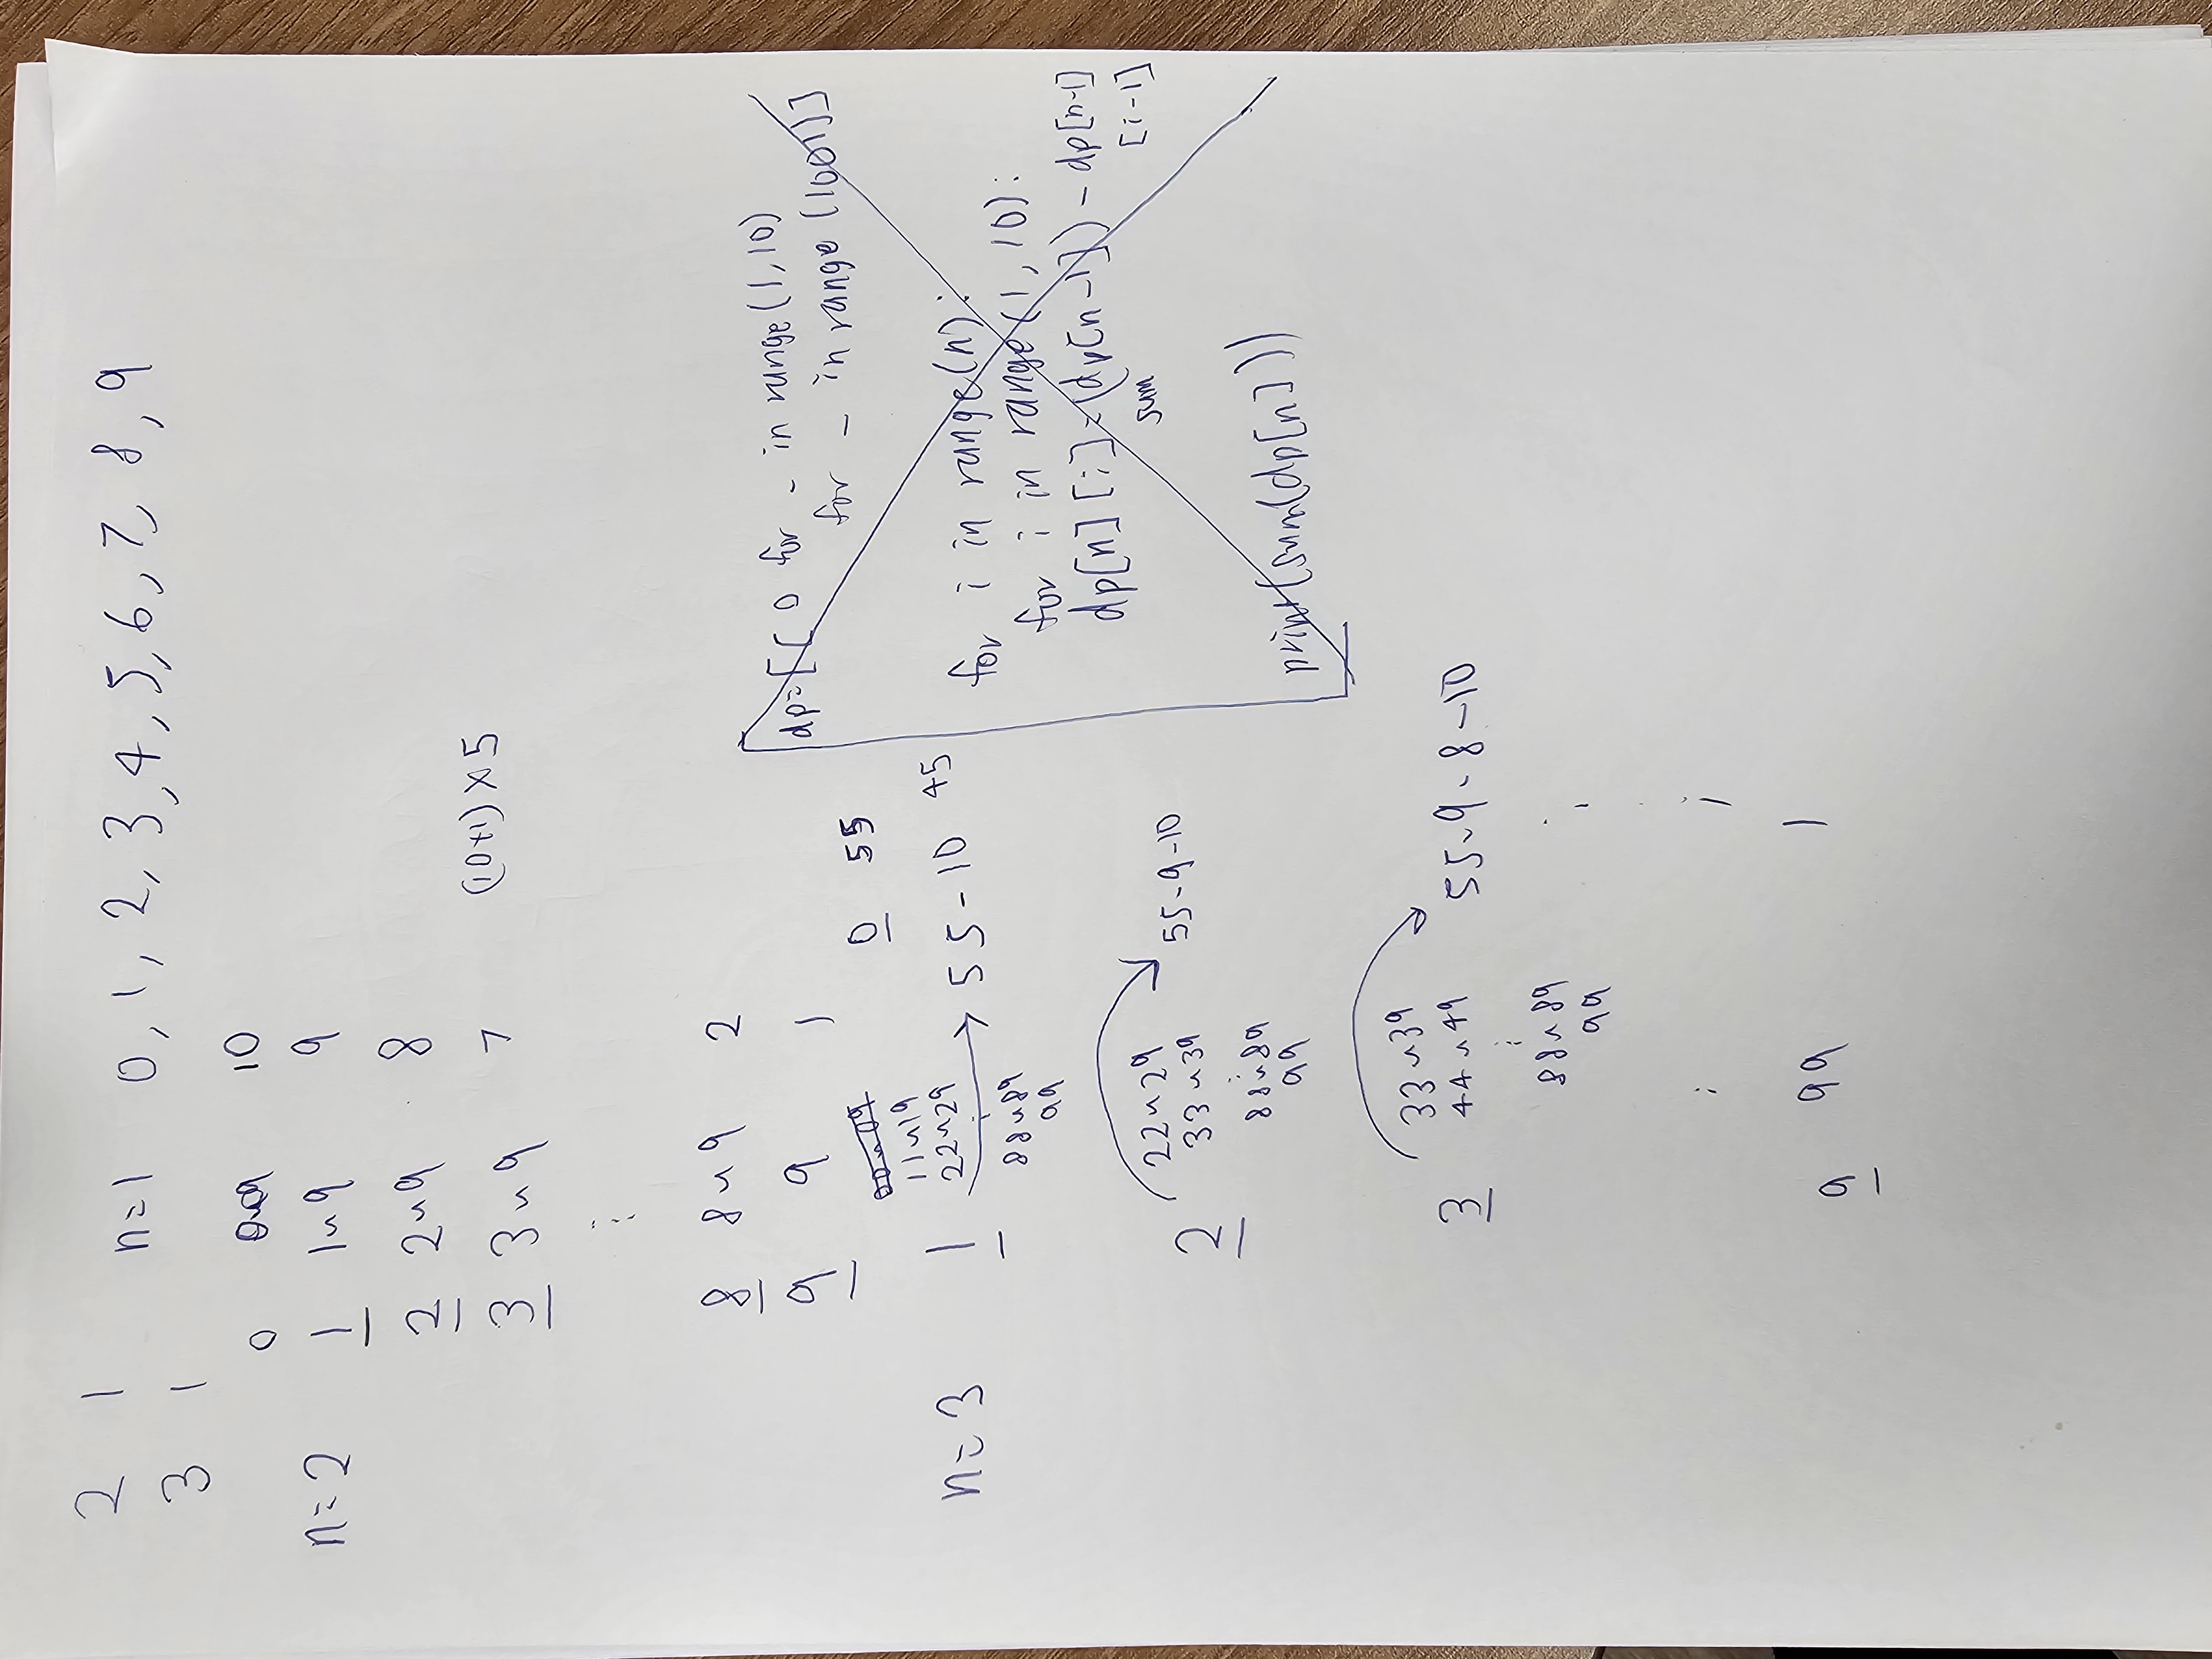 2 1 n=1 0, 1, 2, 3, 4, 5, 6, 7, 8, 9
3 1
0 0~9 10
n=2 1 1~9 9
2 2~9 8
3 3~9 7 (10+1)×5
⋮
8 8~9 2
9 9 1
0 55
n=3 1 11~19
22~29 → 55-10 45
⋮
88~89
99
2 22~29 → 55-9-10
33~39
⋮
88~89
99
3 33~39 → 55-9-8-10
44~49
⋮
88~89
99
⋮
9 99 1
dp=[[0 for _ in range(1,10)
for _ in range(1001)]
for i in range(n):
for i in range(1,10):
dp[n][i]=(dp[n-1])-dp[n-1]
sum [i-1]
print(sum(dp[n]))